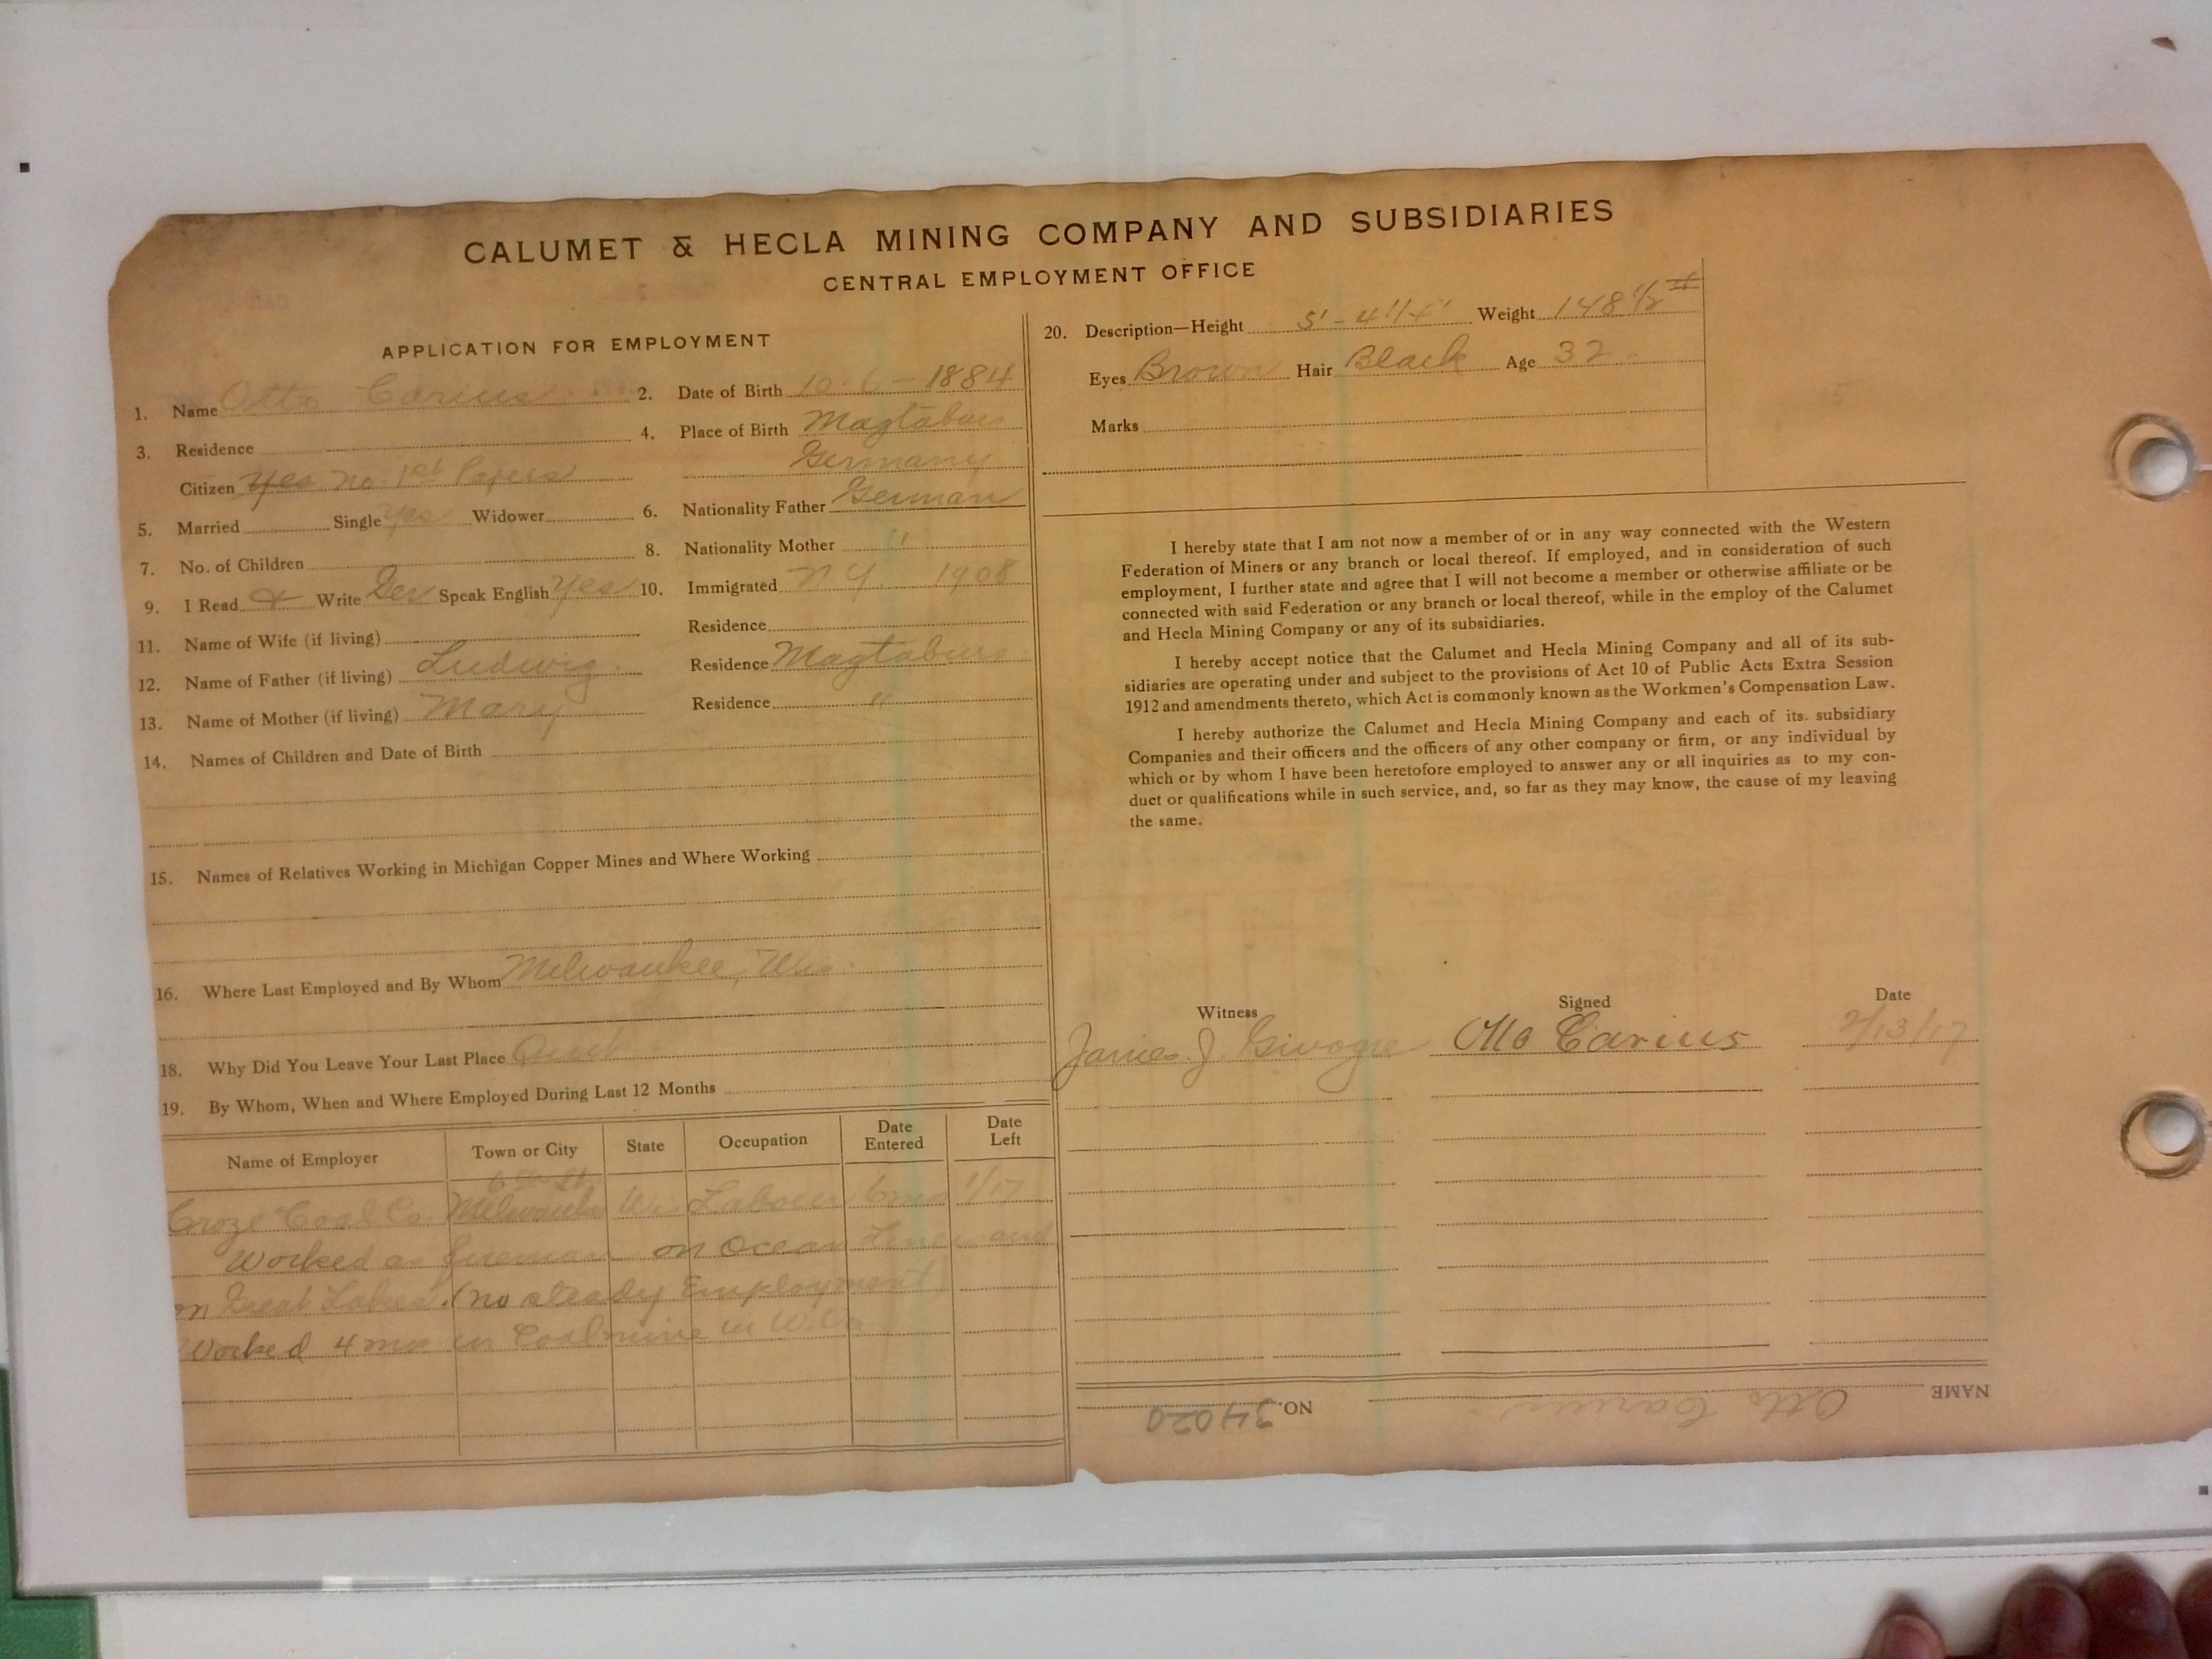 CALUMET & HECLA MINING COMPANY AND SUBSIDIARIES
CENTRAL EMPLOYMENT OFFICE
APPLICATION FOR EMPLOYMENT
1. Name Otto Carius
2. Date of Birth 10-6-1884
3. Residence
4. Place of Birth Magtaburg
Germany
Citizen Yes No 1st Papers
5. Married Single Yes Widower
6. Nationality Father German
7. No. of Children
8. Nationality Mother "
9. I Read & Write Ger Speak English Yes
10. Immigrated N Y. 1908
11. Name of Wife (if living)
Residence
12. Name of Father (if living) Ludwig
Residence Magtaburg
13. Name of Mother (if living) Mary
Residence "
14. Names of Children and Date of Birth
15. Names of Relatives Working in Michigan Copper Mines and Where Working
16. Where Last Employed and By Whom Milwaukee, Wis.
18. Why Did You Leave Your Last Place Quit
19. By Whom, When and Where Employed During Last 12 Months
Name of Employer Town or City State Occupation Date Entered Date Left
6th St
Coal Co. Milwaukee Wis Labour 6 mos 1/17
Worked as fireman on Ocean Liner and
on Great Lakes. (no steady Employment)
Worked 4 mos in Coalmine in W.Va
20. Description—Height 5' - 4 1/4" Weight 148 1/2 #
Eyes Brown Hair Black Age 32
Marks
I hereby state that I am not now a member of or in any way connected with the Western
Federation of Miners or any branch or local thereof. If employed, and in consideration of such
employment, I further state and agree that I will not become a member or otherwise affiliate or be
connected with said Federation or any branch or local thereof, while in the employ of the Calumet
and Hecla Mining Company or any of its subsidiaries.
I hereby accept notice that the Calumet and Hecla Mining Company and all of its sub-
sidiaries are operating under and subject to the provisions of Act 10 of Public Acts Extra Session
1912 and amendments thereto, which Act is commonly known as the Workmen's Compensation Law.
I hereby authorize the Calumet and Hecla Mining Company and each of its. subsidiary
Companies and their officers and the officers of any other company or firm, or any individual by
which or by whom I have been heretofore employed to answer any or all inquiries as to my con-
duct or qualifications while in such service, and, so far as they may know, the cause of my leaving
the same.
Witness Signed Date
James J. Otto Carius 2/13/17
NAME Otto Carius NO. 34020